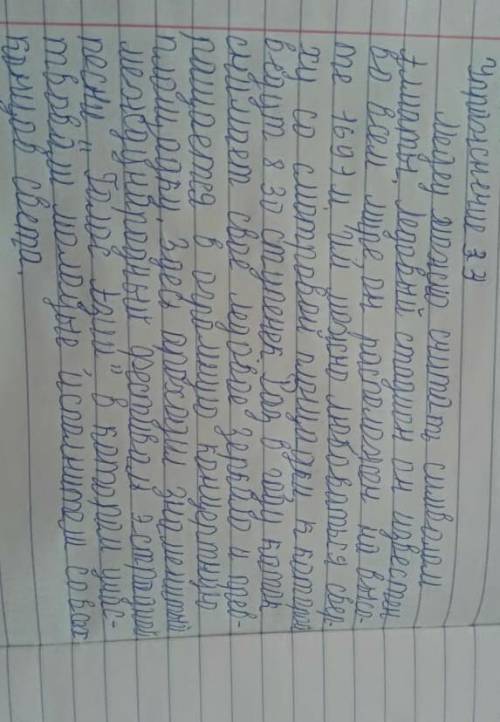 Упражнение 37
Медеу можно считать символом
Алматы. Ледовый стадион он известен
во всём мире он расположен на высо-
те 1691 м им можно любоваться свер-
ху со смотровой площадки к которой
ведут 830 ступенек. Раз в году каток
снимает своё ледовое зеркало и прев-
ращается в огромную концертную
площадку. Здесь проходит знаменитый
международный фестиваль эстрадной
песни " Голос Азии" в котором участ-
твовали молодые исполнители со всех
концов света.